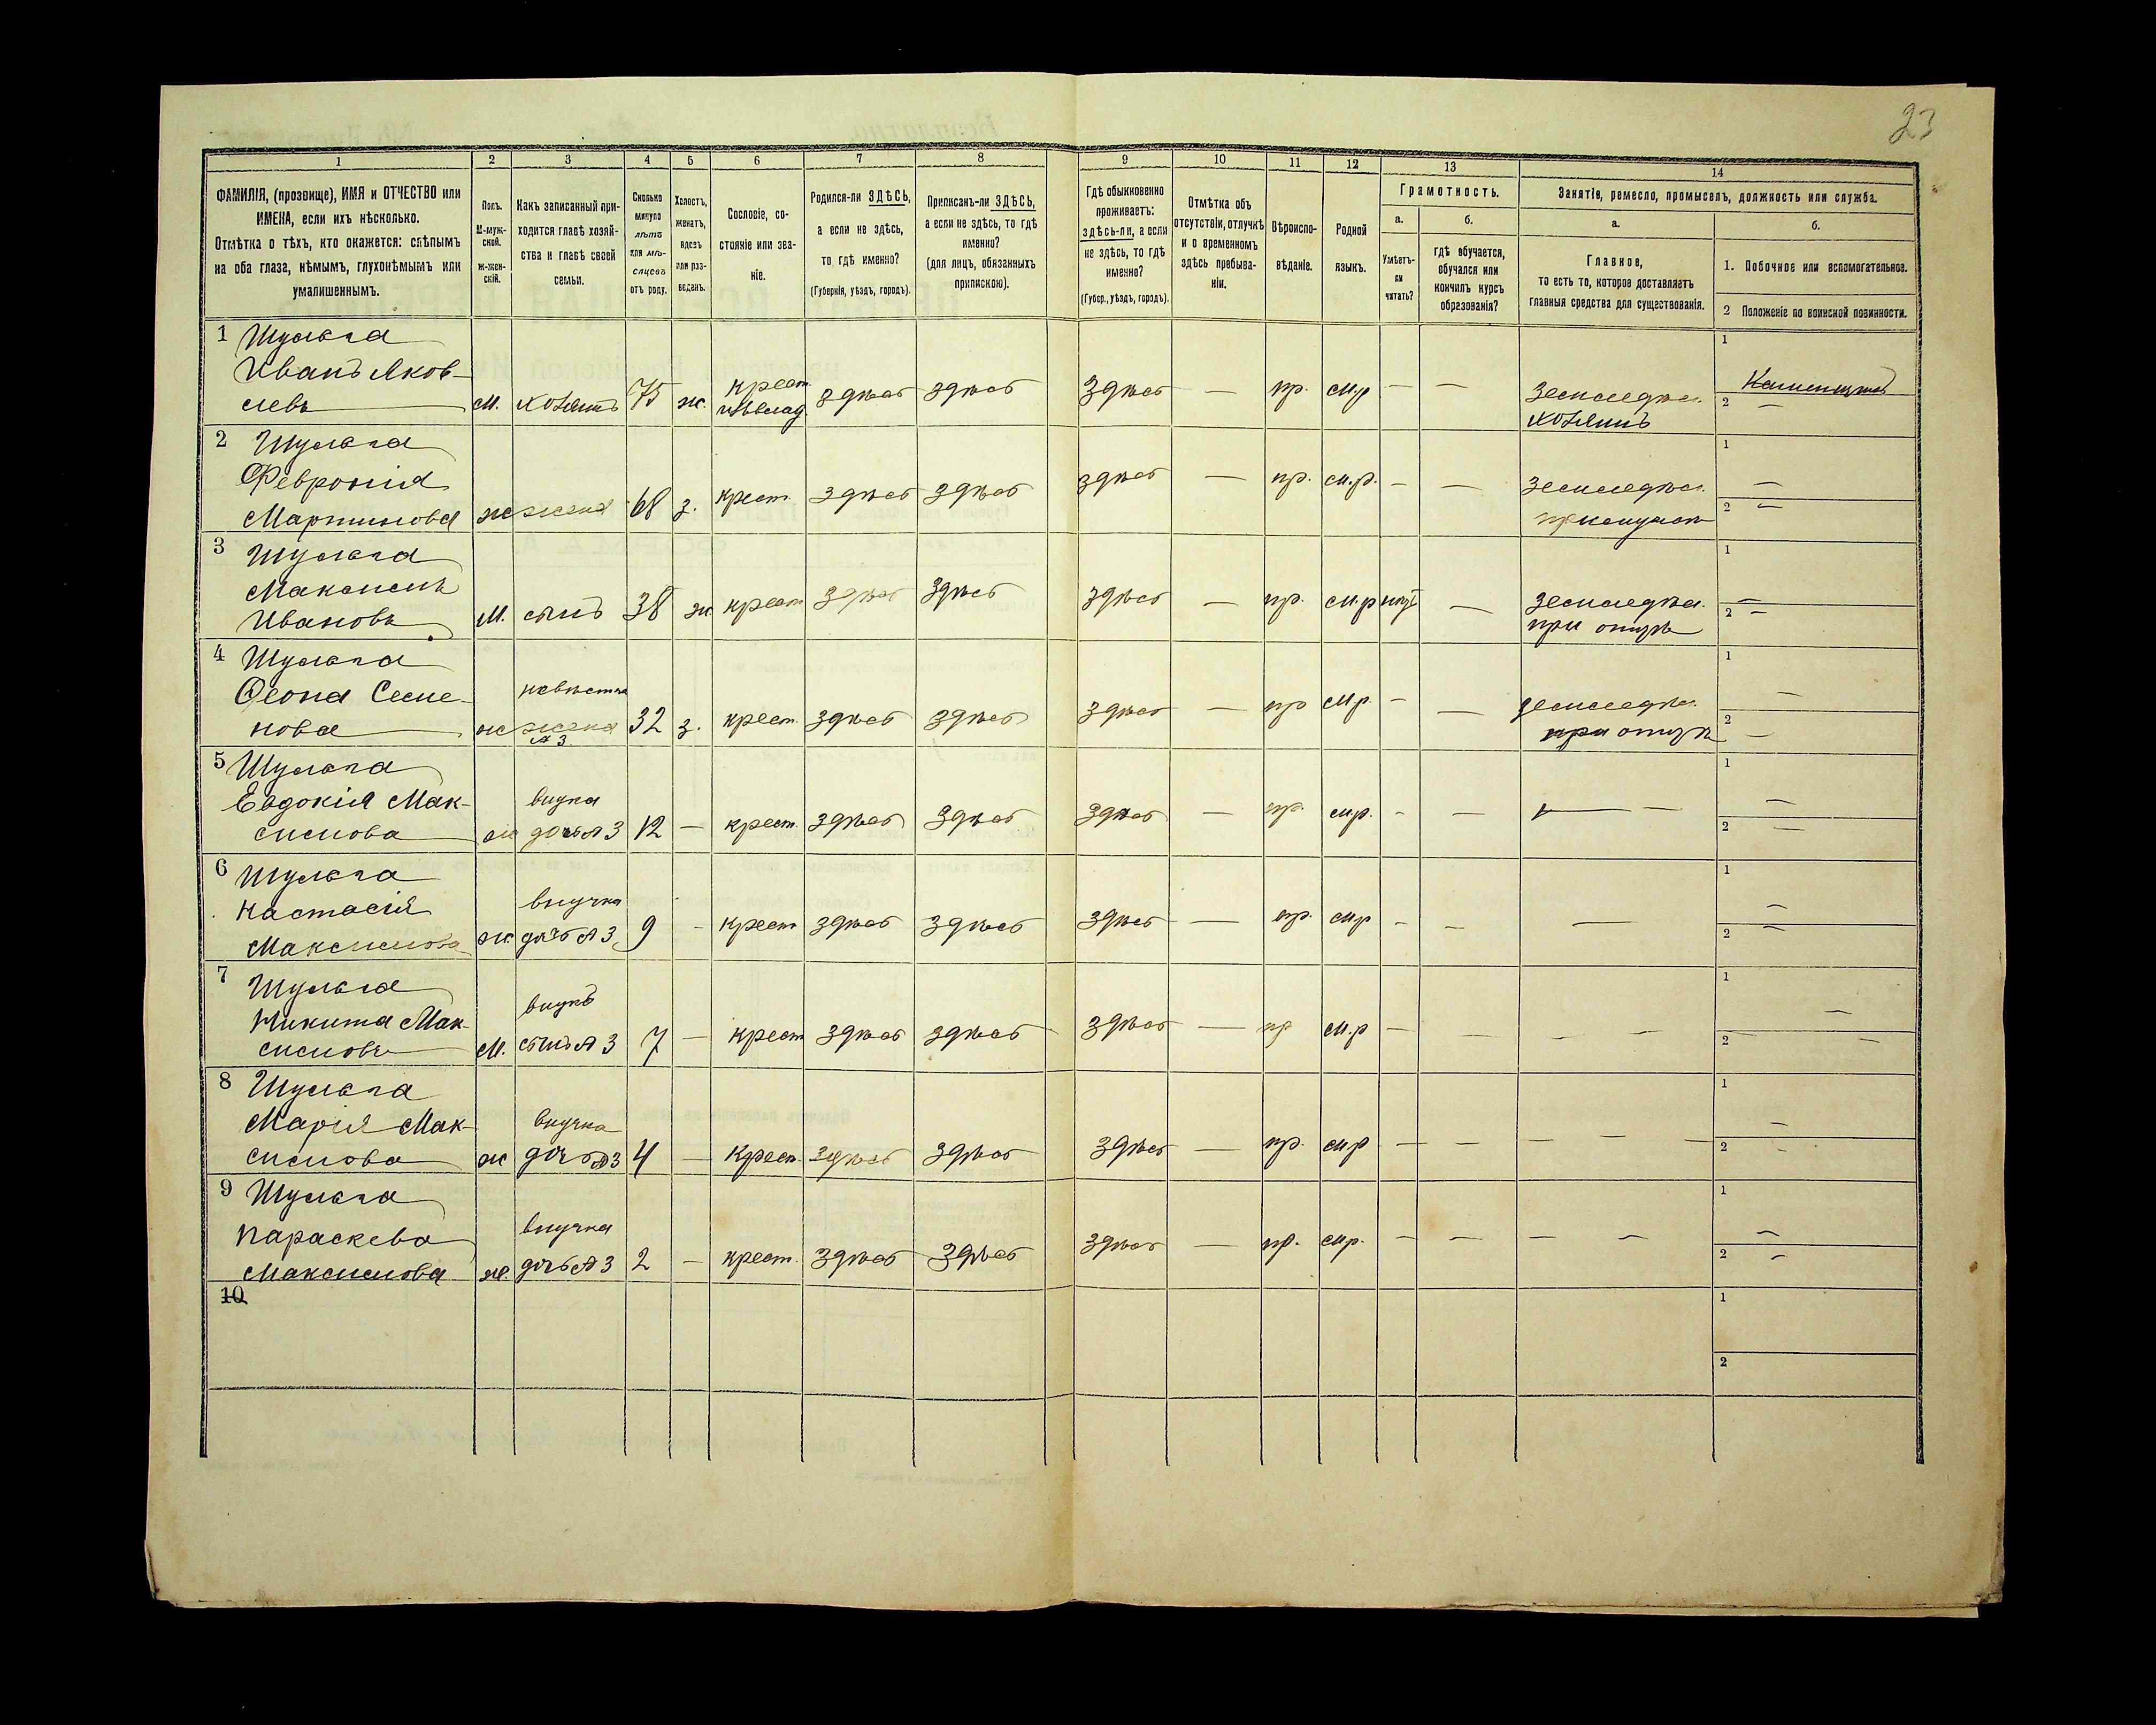 23
1 2 3 4 5 6 7 8 9 10 11 12 13 14
ФАМИЛІЯ, (прозвище), ИМЯ и ОТЧЕСТВО или
ИМЕНА, если ихъ нѣсколько.
Отмѣтка о тѣхъ, кто окажется: слѣпымъ
на оба глаза, нѣмымъ, глухонѣмымъ или
умалишеннымъ.
Полъ.
М-муж-
ской.
ж-жен-
скій.
Какъ записанный при-
ходится главѣ хозяй-
ства и главѣ своей
семьи.
Сколько
минуло
лѣтъ
или мѣ-
сяцевъ
отъ роду.
Холостъ,
женатъ,
вдовъ
или раз-
веденъ.
Сословіе, со-
стояніе или зва-
ніе.
Родился-ли ЗДѢСЬ,
а если не здѣсь,
то гдѣ именно?
(Губернія, уѣздъ, городъ).
Приписанъ-ли ЗДѢСЬ,
а если не здѣсь, то гдѣ
именно?
(для лицъ, обязанныхъ
припискою).
Гдѣ обыкновенно
проживаетъ:
здѣсь-ли, а если
не здѣсь, то гдѣ
именно?
(Губер., уѣздъ, городъ).
Отмѣтка объ
отсутствіи, отлучкѣ
и о временномъ
здѣсь пребыва-
ніи.
Вѣроиспо-
вѣданіе.
Родной
языкъ.
Грамотность.
а.
Умѣетъ-
ли
читать?
б.
гдѣ обучается,
обучался или
кончилъ курсъ
образованія?
Занятіе, ремесло, промыселъ, должность или служба.
а.
Главное,
то есть то, которое доставляетъ
главныя средства для существованія.
б.
1. Побочное или вспомогательное.
2 Положеніе по воинской повинности.
1 Шульга
Иванъ Яков-
левъ М. хозяинъ 75 ж. крест. здѣсь здѣсь здѣсь — пр. м.р — — Земледѣл.
хозяинъ
1
2 —
2 Шульга
Февронія
Мартинова ж жена 68 з. крест. здѣсь здѣсь здѣсь — пр. м.р. — — Земледѣл.
1 —
2 —
3 Шульга
Максимъ
Ивановъ М. сынъ 38 ж крест здѣсь здѣсь здѣсь — пр. м.р — Земледѣл.
при отцѣ
1 —
2 —
4 Шульга
Феона Семе-
нова ж невѣстка
жена
№ 3 32 з. крест. здѣсь здѣсь здѣсь — пр м.р. — — Земледѣл.
при отцѣ
1 —
2 —
5 Шульга
Евдокія Мак-
симова ж внука
дочь № 3 12 — крест. здѣсь здѣсь здѣсь — пр. м.р. — — —
1 —
2 —
6 Шульга
Настасія
Максимова ж. внучка
дочь № 3 9 - крест здѣсь здѣсь здѣсь — пр. м.р — — —
1 —
2 —
7 Шульга
Никита Мак-
симовъ М. внукъ
сынъ № 3 7 — крест здѣсь здѣсь здѣсь — пр м.р — — — —
1 —
2 — —
8 Шульга
Марія Мак-
симова ж внучка
дочь № 3 4 — крест. здѣсь здѣсь здѣсь — пр. м.р — — — — —
1 —
2 -
9 Шульга
Параскева
Максимова ж. внучка
дочь № 3 2 — крест. здѣсь здѣсь здѣсь — пр. м.р. — — — —
1 —
2 —
10
1
2